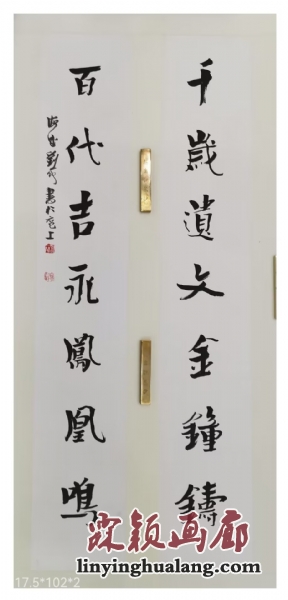 千歲遺文金鐘鑄
百代吉永鳳凰鳴
霖颖画廊
linyinghualang.com
17.5*102*2